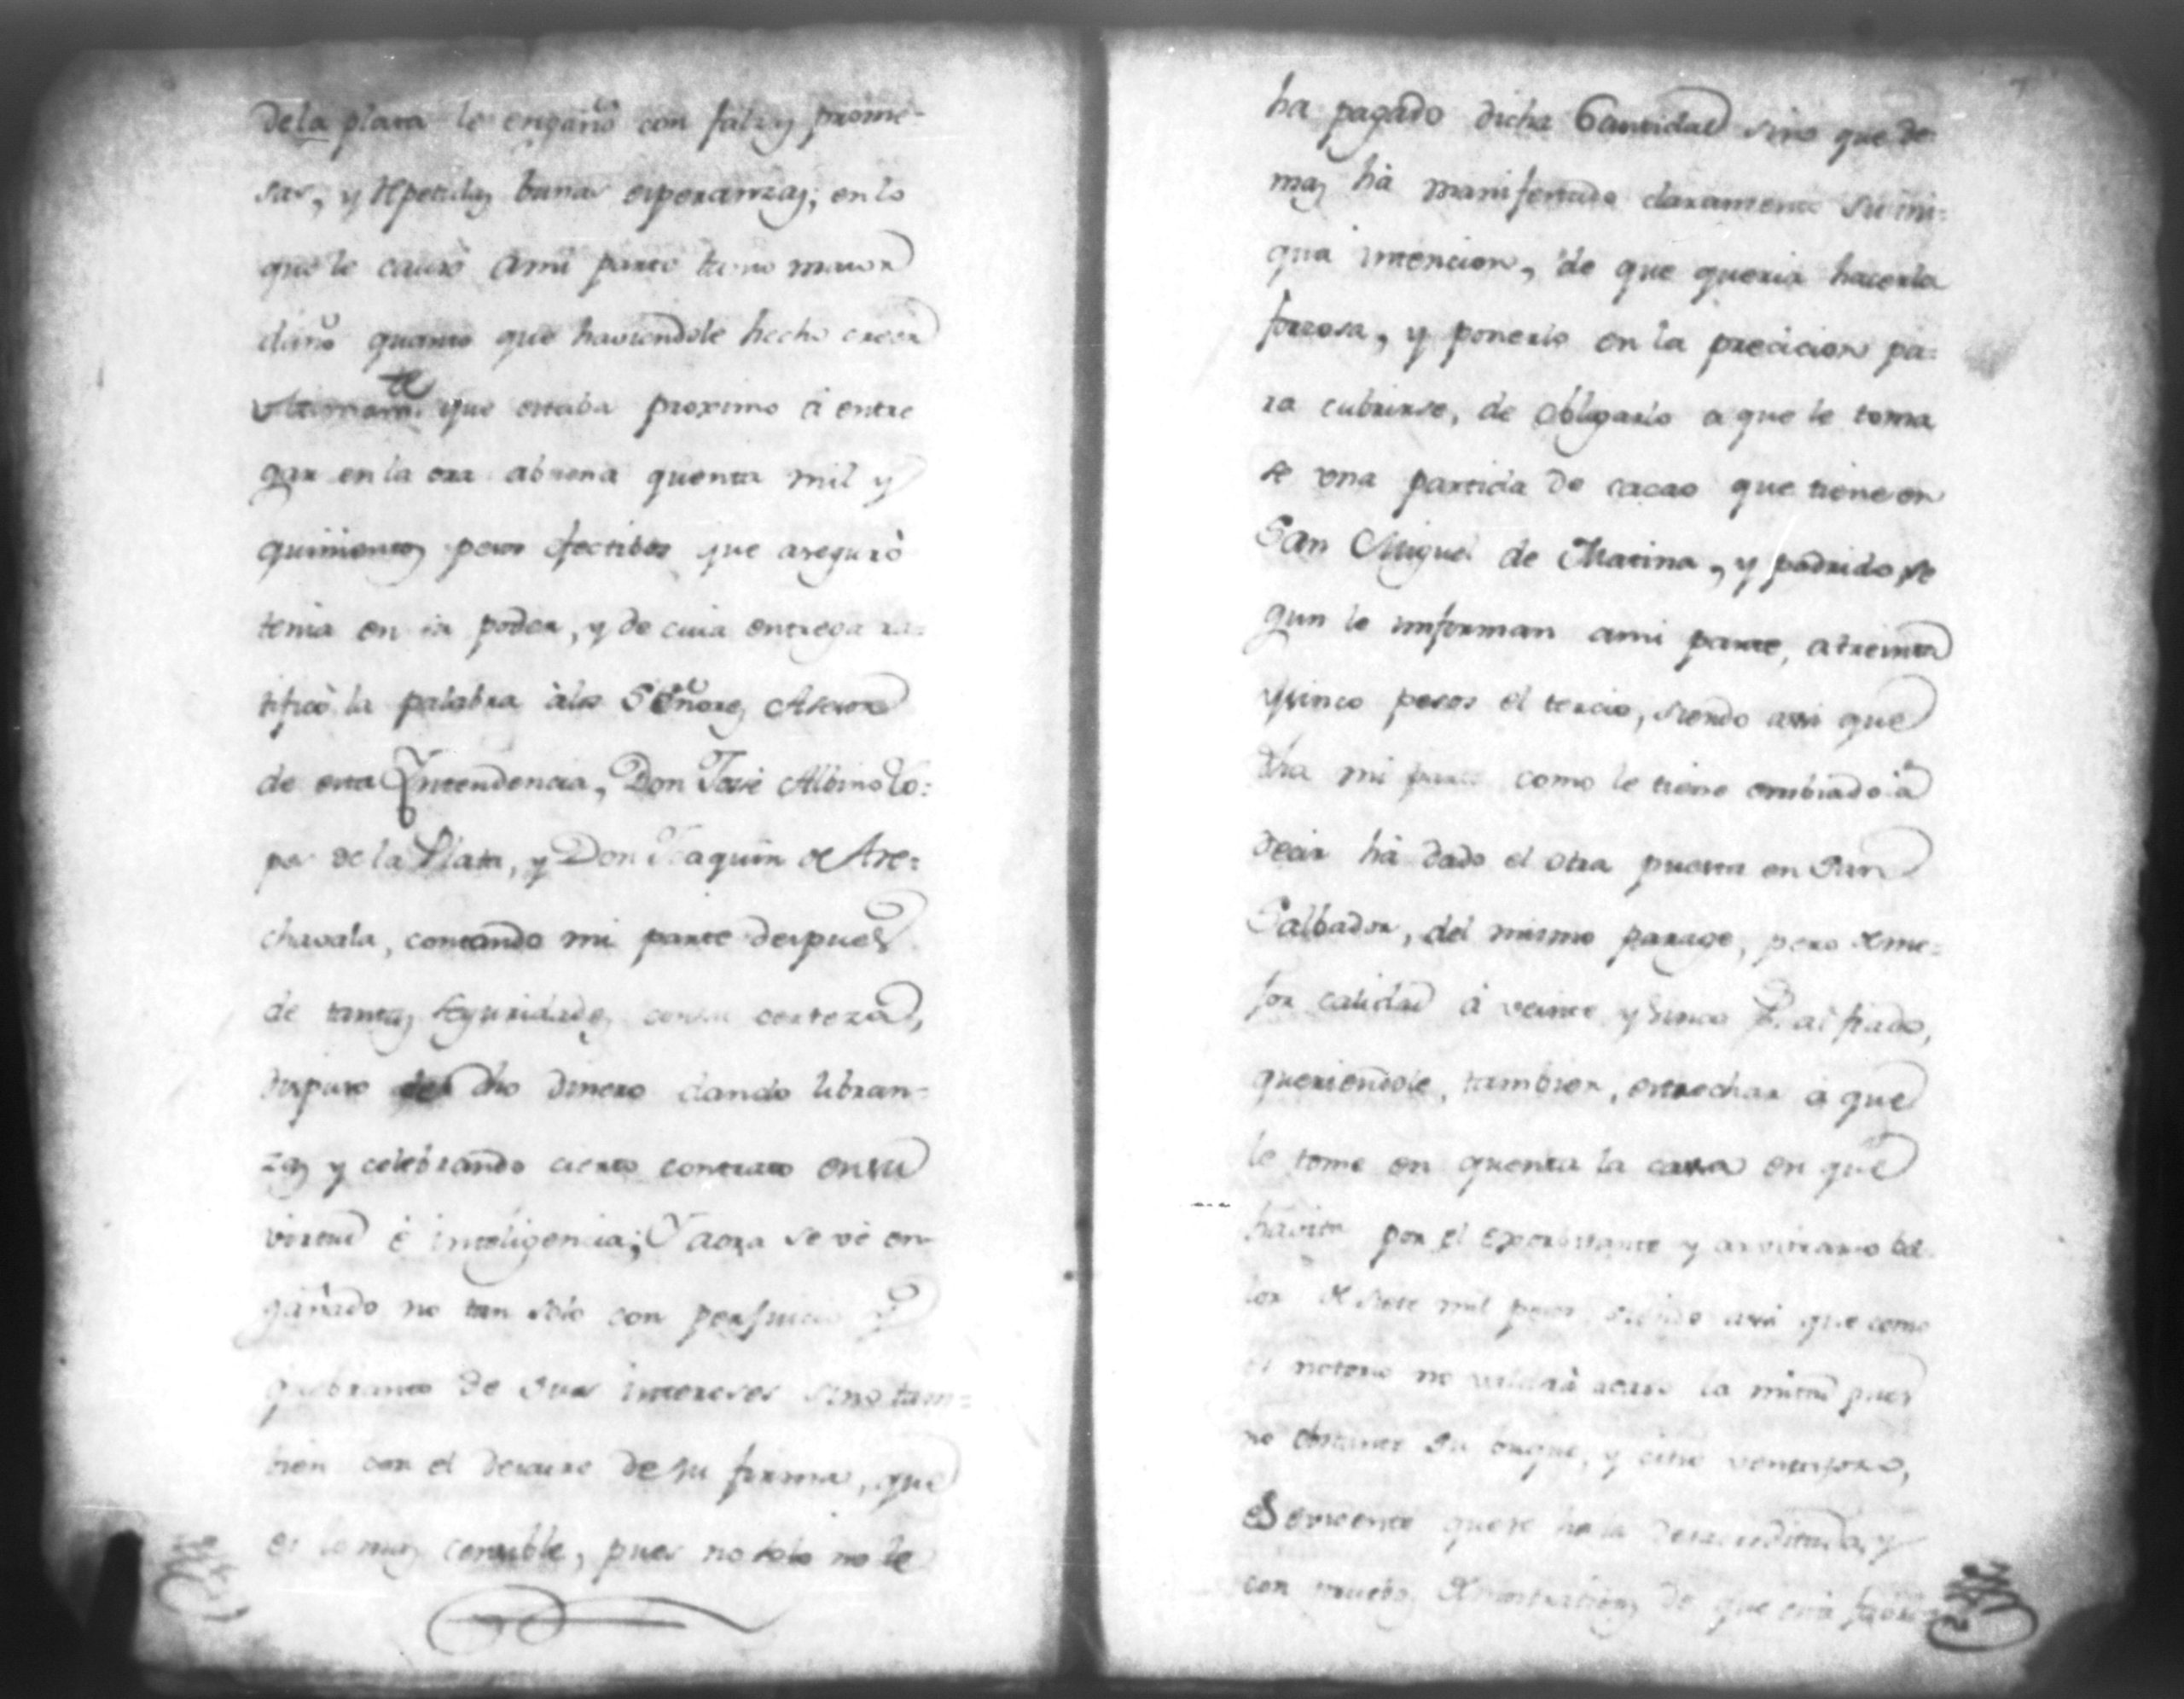 dela plata le engañó con falzas prome-
sas, y repetidas buenas esperanzas; en lo
que le causó ami parte tanto maior
daño quanto que haviendole hecho creer
ultimamte. que estaba proximo á entre
gar en la ora abuena quenta mil y
quinientos pesos efectibos que aseguró
tenia en su poder, y de cuia entrega ra-
tificó la palabra álos Señores Asesor
de esta Yntendencia, Don José Albino Lo-
pes de la Plata, y Don Joaquin de Are-
chavala, contando mi parte despues
de tantas seguridades con su certeza,
dispuso del dho dinero dando libran-
zas y celebrando cierto contrato en su
virtud é inteligencia; Y aora se vé en
gañado no tan solo con perjuicio y
quebranto de sus intereses sino tam-
bien con el desaire de su firma, que
es lo mas censible, pues no solo no le
ha pagado dicha Cantidad sino que de
mas há manifestado claramente su ini-
qua intencion, de que queria hacerla
forzosa, y ponerlo en la precicion pa-
ra cubrirse, de obligarlo a que le toma
se una partida de cacao que tiene en
San Miguel de Matina, y podrido se
gun le informan ami parte, a treinta
y sinco pesos el tercio, siendo assi que
mi parte como le tiene embiado á
decir há dado el otra puesta en San
Salbador, del mismo parage, pero de me-
jor calidad á veinte y sinco P. al fiado,
queriendole, tambien, estrechar á que
le tome en quenta la casa en que
havita por el exorbitante y arvitrario ba-
lor de siete mil pesos siendo assi que como
es notorio no valdrá acaso la mitad pues
no obstante su buque, y citio ventajoso,
que se ha la desacreditada, y
con de que esta